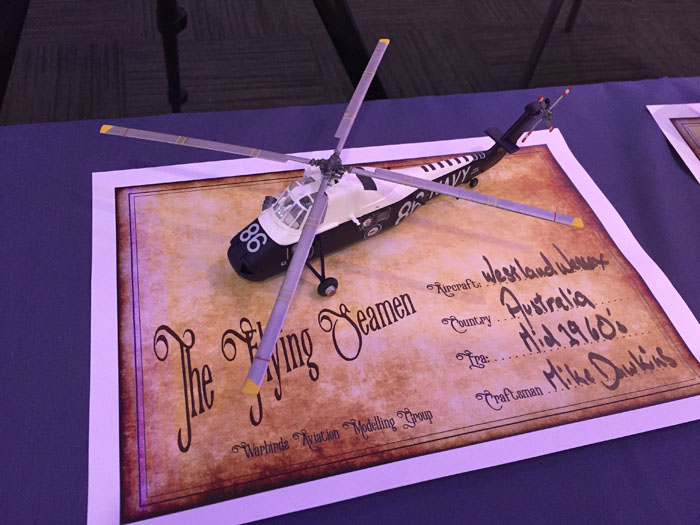 86
86 NAVY
The Flying Seamen
Warbirds Aviation Modelling Group
Aircraft: Westland Wessex
Country Australia
Era: Mid 1960's
Craftsman Mike Dawkins